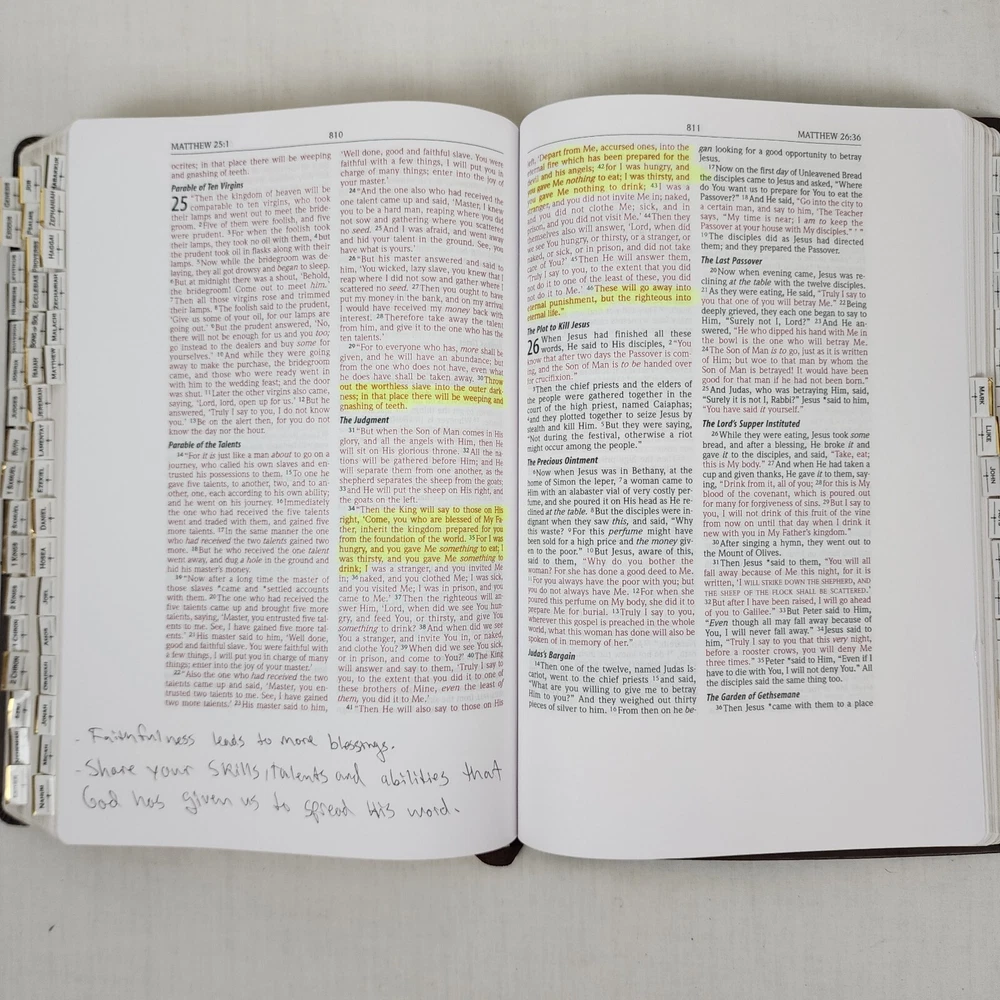 MATTHEW 25:1
810
ocrites; in that place there will be weeping
and gnashing of teeth.
Parable of Ten Virgins
25 "Then the kingdom of heaven will be
comparable to ten virgins, who took
their lamps and went out to meet the bride-
groom. 2Five of them were foolish, and five
were prudent. 3For when the foolish took
their lamps, they took no oil with them, 4but
the prudent took oil in flasks along with their
lamps. 5Now while the bridegroom was de-
laying, they all got drowsy and began to sleep.
6But at midnight there was a shout, 'Behold,
the bridegroom! Come out to meet him.'
7Then all those virgins rose and trimmed
their lamps. 8The foolish said to the prudent,
'Give us some of your oil, for our lamps are
going out.' 9But the prudent answered, 'No,
there will not be enough for us and you too;
go instead to the dealers and buy some for
yourselves.' 10And while they were going
away to make the purchase, the bridegroom
came, and those who were ready went in
with him to the wedding feast; and the door
was shut. 11Later the other virgins also came,
saying, 'Lord, lord, open up for us.' 12But he
answered, 'Truly I say to you, I do not know
you.' 13Be on the alert then, for you do not
know the day nor the hour.
Parable of the Talents
14"For it is just like a man about to go on a
journey, who called his own slaves and en-
trusted his possessions to them. 15To one he
gave five talents, to another, two, and to an-
other, one, each according to his own ability;
and he went on his journey. 16Immediately
the one who had received the five talents
went and traded with them, and gained five
more talents. 17In the same manner the one
who had received the two talents gained two
more. 18But he who received the one talent
went away, and dug a hole in the ground and
hid his master's money.
19"Now after a long time the master of
those slaves *came and *settled accounts
with them. 20The one who had received the
five talents came up and brought five more
talents, saying, 'Master, you entrusted five tal-
ents to me. See, I have gained five more tal-
ents.' 21His master said to him, 'Well done,
good and faithful slave. You were faithful with
a few things, I will put you in charge of many
things; enter into the joy of your master.'
22"Also the one who had received the two
talents came up and said, 'Master, you en-
trusted two talents to me. See, I have gained
two more talents.' 23His master said to him,
'Well done, good and faithful slave. You were
faithful with a few things, I will put you in
charge of many things; enter into the joy of
your master.'
24"And the one also who had received the
one talent came up and said, 'Master, I knew
you to be a hard man, reaping where you did
not sow and gathering where you scattered
no seed. 25And I was afraid, and went away
and hid your talent in the ground. See, you
have what is yours.'
26"But his master answered and said to
him, 'You wicked, lazy slave, you knew that I
reap where I did not sow and gather where I
scattered no seed. 27Then you ought to have
put my money in the bank, and on my arrival
I would have received my money back with
interest. 28Therefore take away the talent
from him, and give it to the one who has the
ten talents.'
29"For to everyone who has, more shall be
given, and he will have an abundance; but
from the one who does not have, even what
he does have shall be taken away. 30Throw
out the worthless slave into the outer dark-
ness; in that place there will be weeping and
gnashing of teeth.
The Judgment
31"But when the Son of Man comes in His
glory, and all the angels with Him, then He
will sit on His glorious throne. 32All the na-
tions will be gathered before Him; and He
will separate them from one another, as the
shepherd separates the sheep from the goats;
33and He will put the sheep on His right, and
the goats on the left.
34"Then the King will say to those on His
right, 'Come, you who are blessed of My Fa-
ther, inherit the kingdom prepared for you
from the foundation of the world. 35For I was
hungry, and you gave Me something to eat; I
was thirsty, and you gave Me something to
drink; I was a stranger, and you invited Me
in; 36naked, and you clothed Me; I was sick,
and you visited Me; I was in prison, and you
came to Me.' 37Then the righteous will an-
swer Him, 'Lord, when did we see You hun-
gry, and feed You, or thirsty, and give You
something to drink? 38And when did we see
You a stranger, and invite You in, or naked,
and clothe You? 39When did we see You sick,
or in prison, and come to You?' 40The King
will answer and say to them, 'Truly I say to
you, to the extent that you did it to one of
these brothers of Mine, even the least of
them, you did it to Me.'
41"Then He will also say to those on His
- Faithfulness leads to more blessings.
- Share your skills, talents and abilities that
God has given us to spread His word.
811
MATTHEW 26:36
left, 'Depart from Me, accursed ones, into the
eternal fire which has been prepared for the
devil and his angels; 42for I was hungry, and
you gave Me nothing to eat; I was thirsty, and
you gave Me nothing to drink; 43I was a
stranger, and you did not invite Me in; naked,
and you did not clothe Me; sick, and in
prison, and you did not visit Me.' 44Then they
themselves also will answer, 'Lord, when did
we see You hungry, or thirsty, or a stranger, or
naked, or sick, or in prison, and did not take
care of You?' 45Then He will answer them,
'Truly I say to you, to the extent that you did
not do it to one of the least of these, you did
not do it to Me.' 46These will go away into
eternal punishment, but the righteous into
eternal life."
The Plot to Kill Jesus
26 When Jesus had finished all these
words, He said to His disciples, 2"You
know that after two days the Passover is com-
ing, and the Son of Man is to be handed over
for crucifixion."
3Then the chief priests and the elders of
the people were gathered together in the
court of the high priest, named Caiaphas;
4and they plotted together to seize Jesus by
stealth and kill Him. 5But they were saying,
"Not during the festival, otherwise a riot
might occur among the people."
The Precious Ointment
6Now when Jesus was in Bethany, at the
home of Simon the leper, 7a woman came to
Him with an alabaster vial of very costly per-
fume, and she poured it on His head as He re-
clined at the table. 8But the disciples were in-
dignant when they saw this, and said, "Why
this waste? 9For this perfume might have
been sold for a high price and the money giv-
en to the poor." 10But Jesus, aware of this,
said to them, "Why do you bother the
woman? For she has done a good deed to Me.
11For you always have the poor with you; but
you do not always have Me. 12For when she
poured this perfume on My body, she did it to
prepare Me for burial. 13Truly I say to you,
wherever this gospel is preached in the whole
world, what this woman has done will also be
spoken of in memory of her."
Judas's Bargain
14Then one of the twelve, named Judas Is-
cariot, went to the chief priests 15and said,
"What are you willing to give me to betray
Him to you?" And they weighed out thirty
pieces of silver to him. 16From then on he be-
gan looking for a good opportunity to betray
Jesus.
17Now on the first day of Unleavened Bread
the disciples came to Jesus and asked, "Where
do You want us to prepare for You to eat the
Passover?" 18And He said, "Go into the city to
a certain man, and say to him, 'The Teacher
says, "My time is near; I am to keep the
Passover at your house with My disciples." ' "
19The disciples did as Jesus had directed
them; and they prepared the Passover.
The Last Passover
20Now when evening came, Jesus was re-
clining at the table with the twelve disciples.
21As they were eating, He said, "Truly I say to
you that one of you will betray Me." 22Being
deeply grieved, they each one began to say to
Him, "Surely not I, Lord?" 23And He an-
swered, "He who dipped his hand with Me in
the bowl is the one who will betray Me.
24The Son of Man is to go, just as it is written
of Him; but woe to that man by whom the
Son of Man is betrayed! It would have been
good for that man if he had not been born."
25And Judas, who was betraying Him, said,
"Surely it is not I, Rabbi?" Jesus *said to him,
"You have said it yourself."
The Lord's Supper Instituted
26While they were eating, Jesus took some
bread, and after a blessing, He broke it and
gave it to the disciples, and said, "Take, eat;
this is My body." 27And when He had taken a
cup and given thanks, He gave it to them, say-
ing, "Drink from it, all of you; 28for this is My
blood of the covenant, which is poured out
for many for forgiveness of sins. 29But I say to
you, I will not drink of this fruit of the vine
from now on until that day when I drink it
new with you in My Father's kingdom."
30After singing a hymn, they went out to
the Mount of Olives.
31Then Jesus *said to them, "You will all
fall away because of Me this night, for it is
written, 'I WILL STRIKE DOWN THE SHEPHERD, AND
THE SHEEP OF THE FLOCK SHALL BE SCATTERED.'
32But after I have been raised, I will go ahead
of you to Galilee." 33But Peter said to Him,
"Even though all may fall away because of
You, I will never fall away." 34Jesus said to
him, "Truly I say to you that this very night,
before a rooster crows, you will deny Me
three times." 35Peter *said to Him, "Even if I
have to die with You, I will not deny You." All
the disciples said the same thing too.
The Garden of Gethsemane
36Then Jesus *came with them to a place
MARK
LUKE
JOHN